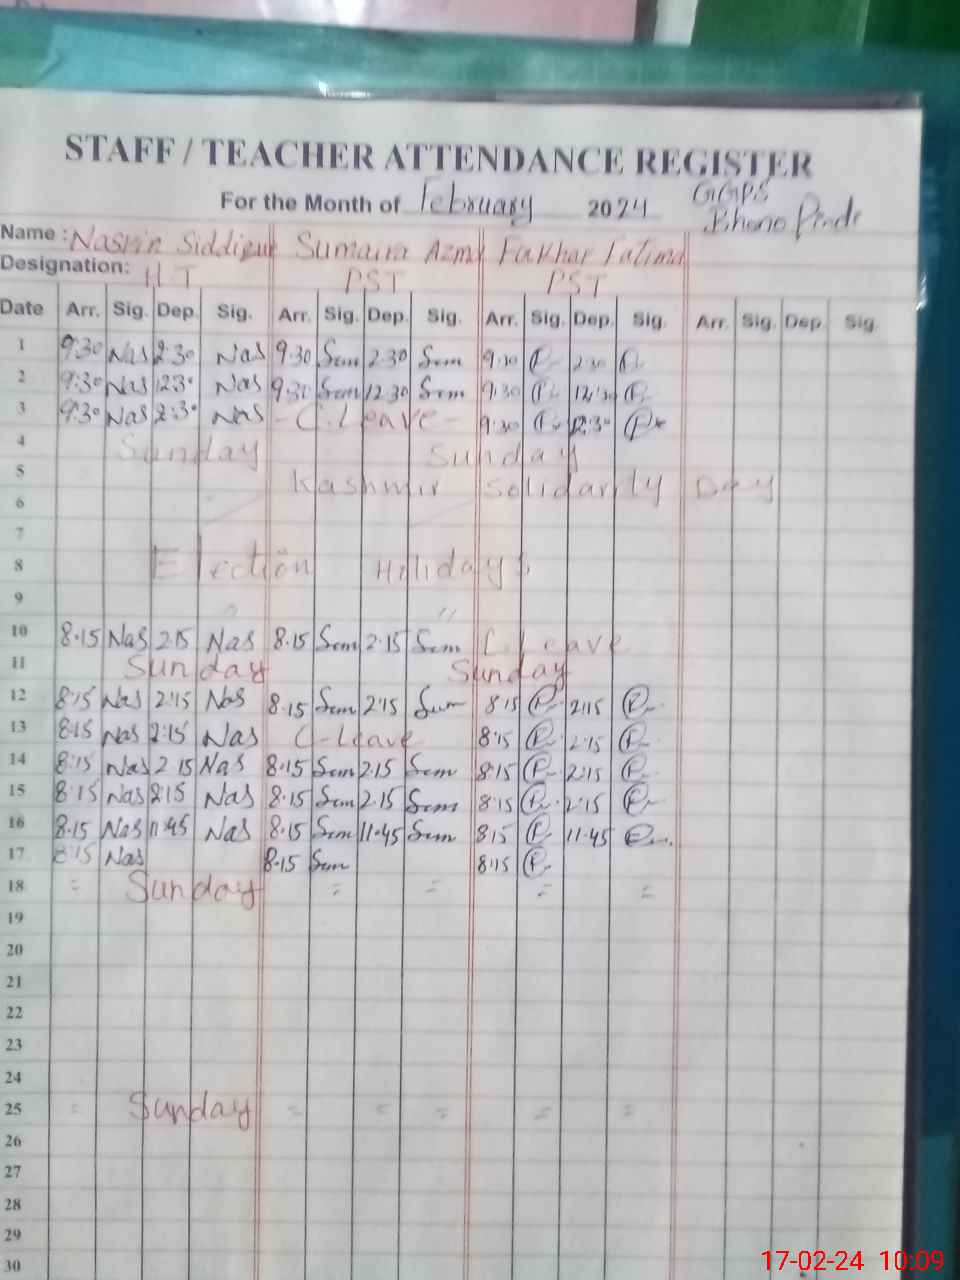 STAFF / TEACHER ATTENDANCE REGISTER
For the Month of February 2024 GGPS
Name : Nasrin Siddique Sumaira Azmat Fakhar Fatima
Designation: H.T PST PST
Date Arr. Sig. Dep. Sig. Arr. Sig. Dep. Sig. Arr. Sig. Dep. Sig. Arr. Sig. Dep. Sig.
1 9:30 Nas 2:30 Nas 9.30 Sum 2.30 Sum 9:30 2:30
2 9:30 Nas 1230 Nas 9:30 Sum 12.30 Sum 9:30 12:30
3 9:30 Nas 2:30 Nas - C. Leave - 9:30 12:30
4 Sunday Sunday
5 Kashmir Solidarity Day
6
7
8 Election Holidays
9 " "
10 8.15 Nas 2.15 Nas 8.15 Sum 2.15 Sum C. Leave
11 Sunday Sunday
12 8:15 Nas 2:15 Nas 8.15 Sum 2.15 Sum 8:15 2:15
13 8:15 Nas 2:15 Nas C-Leave 8:15 2:15
14 8:15 Nas 2 15 Nas 8.15 Sum 2.15 Sum 8:15 2:15
15 8:15 Nas 2:15 Nas 8.15 Sum 2.15 Sum 8:15 2:15
16 8.15 Nas 11:45 Nas 8.15 Sum 11.45 Sum 8:15 11.45
17 8:15 Nas 8.15 Sum 8:15
18 = Sunday = = = =
19
20
21
22
23
24
25 = Sunday = = = = =
26
27
28
29
30
17-02-24 10:09